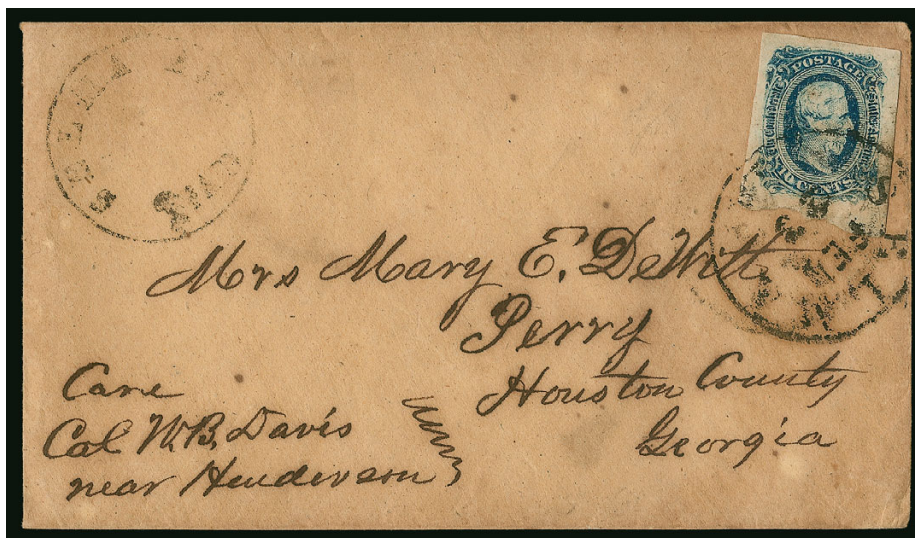 SELMA
POSTAGE
TEN CENTS
SELMA
Mrs Mary E. DeWitt
Perry
Houston County
Georgia
Care
Col W.B. Davis
near Henderson